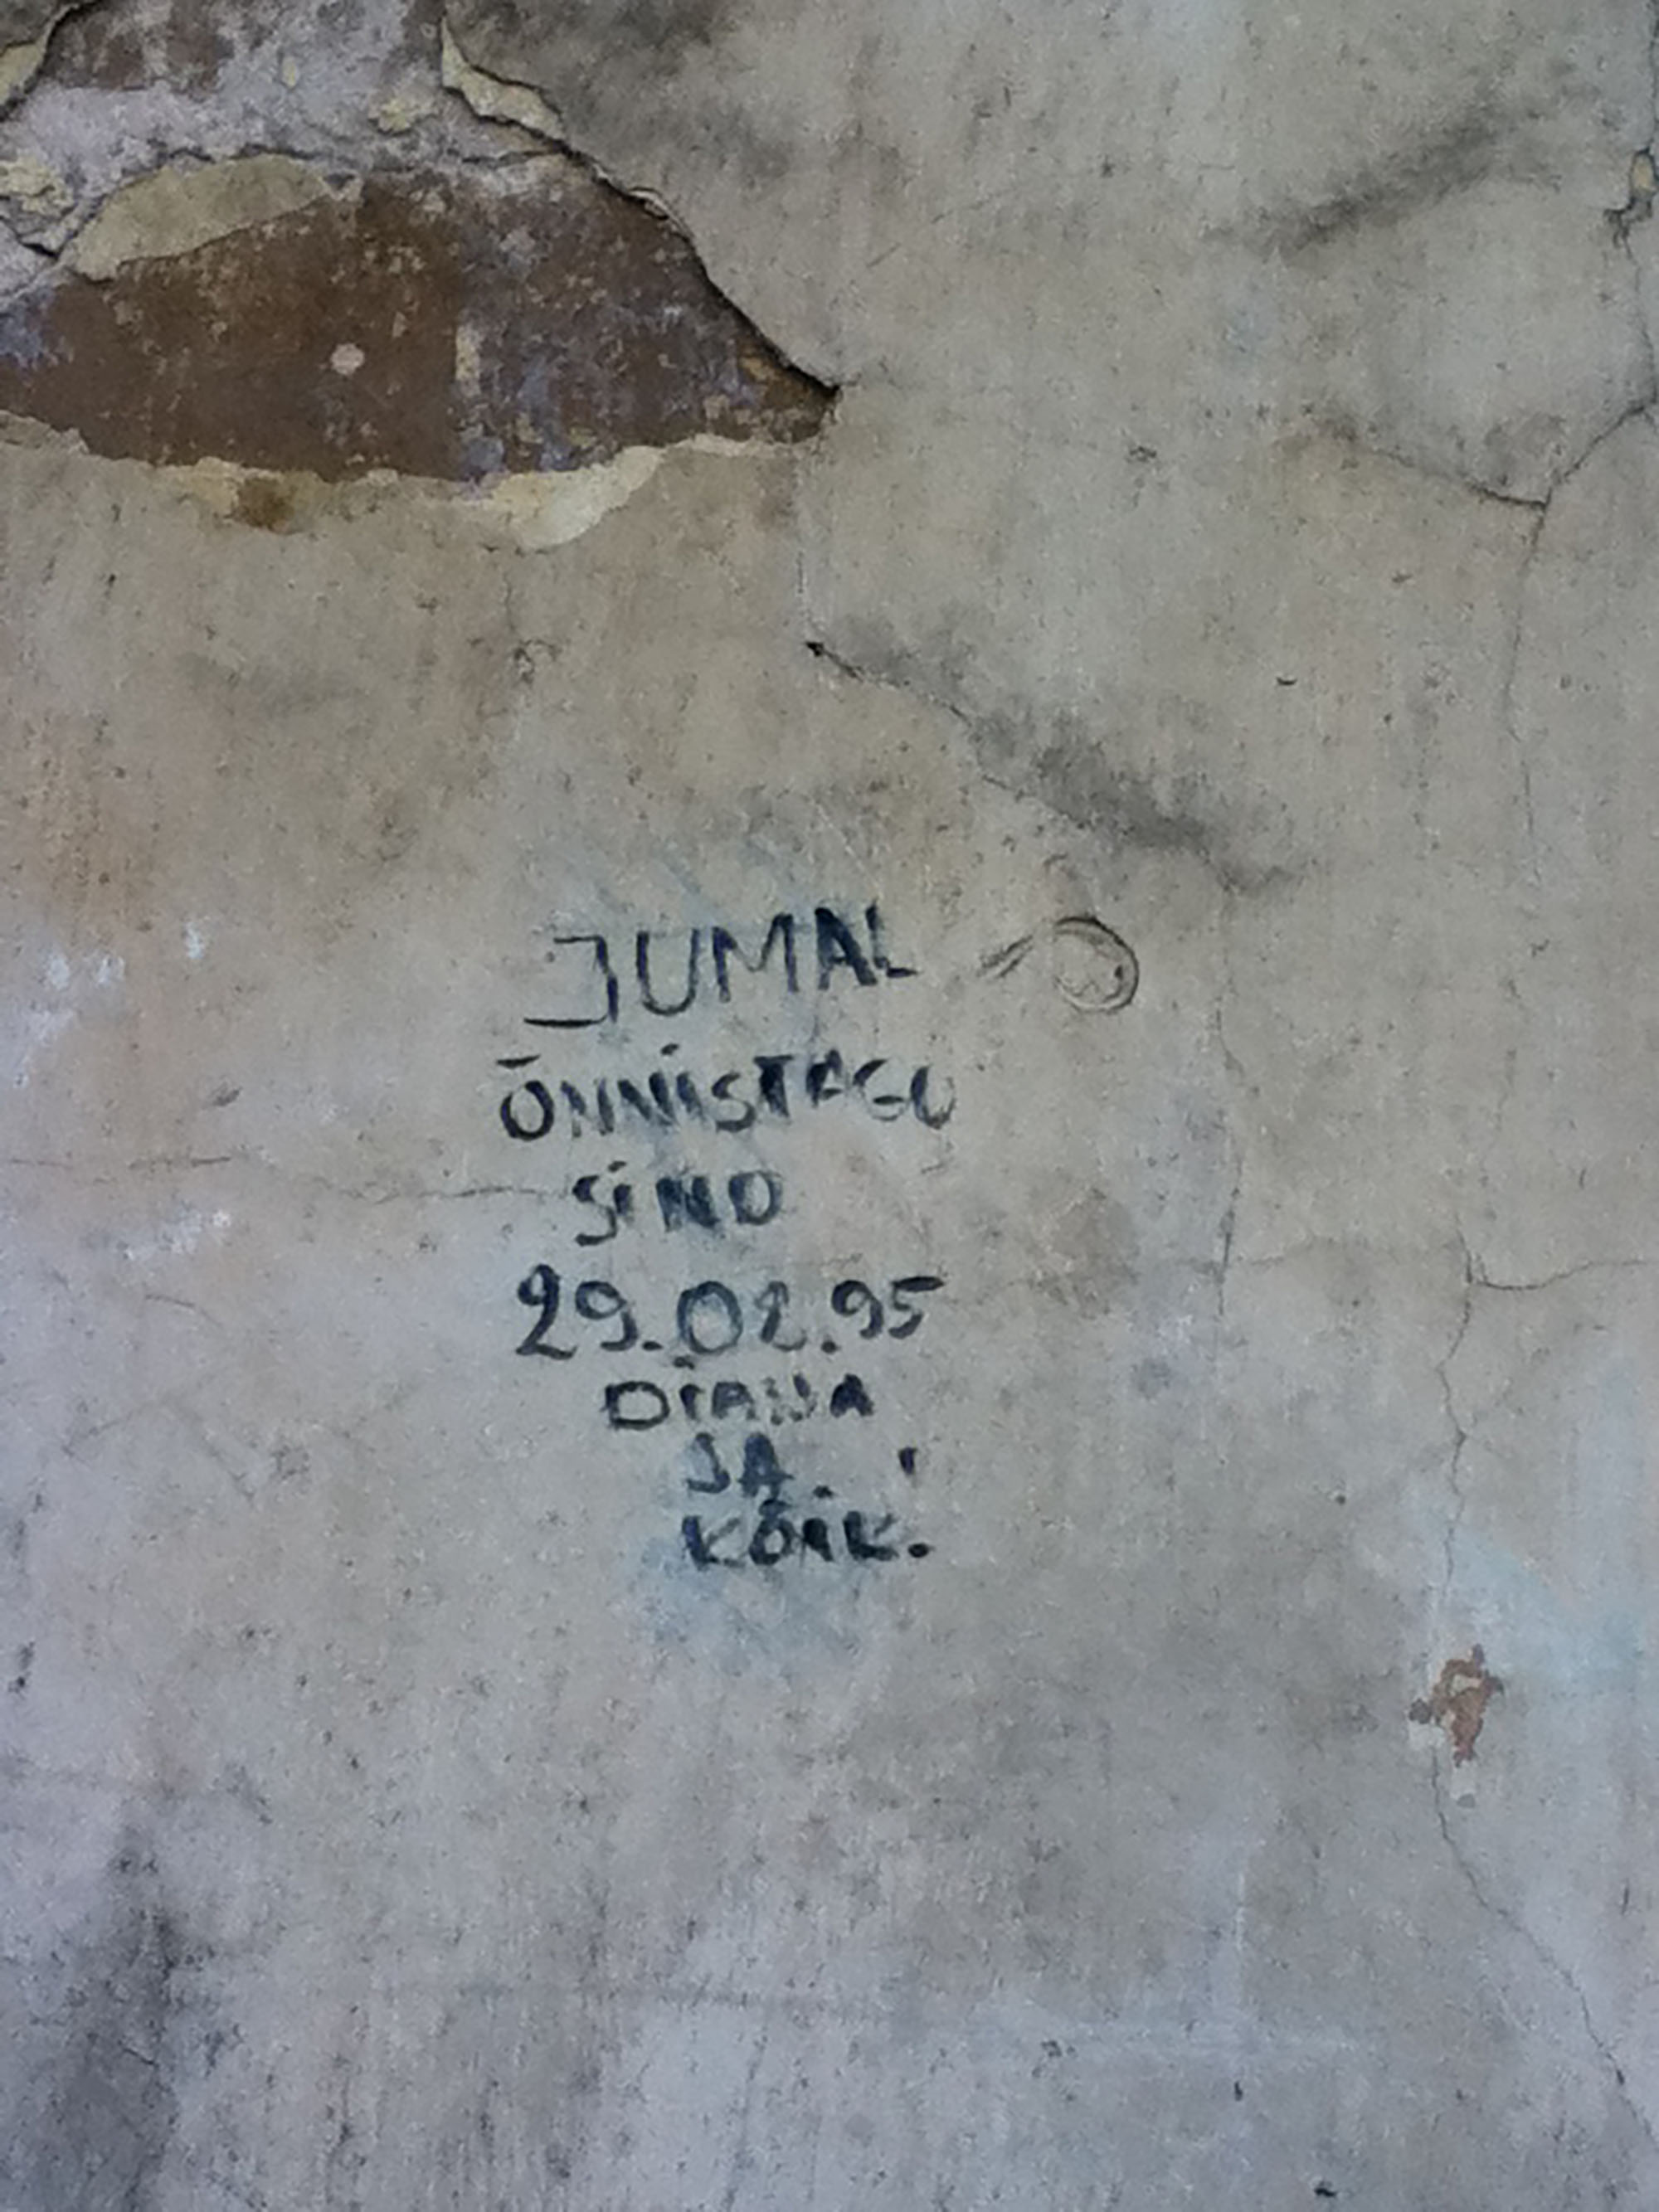 JUMAL
ÕNNISTAGU
SIND
29.02.95
DIANA
JA.
KÕIK.